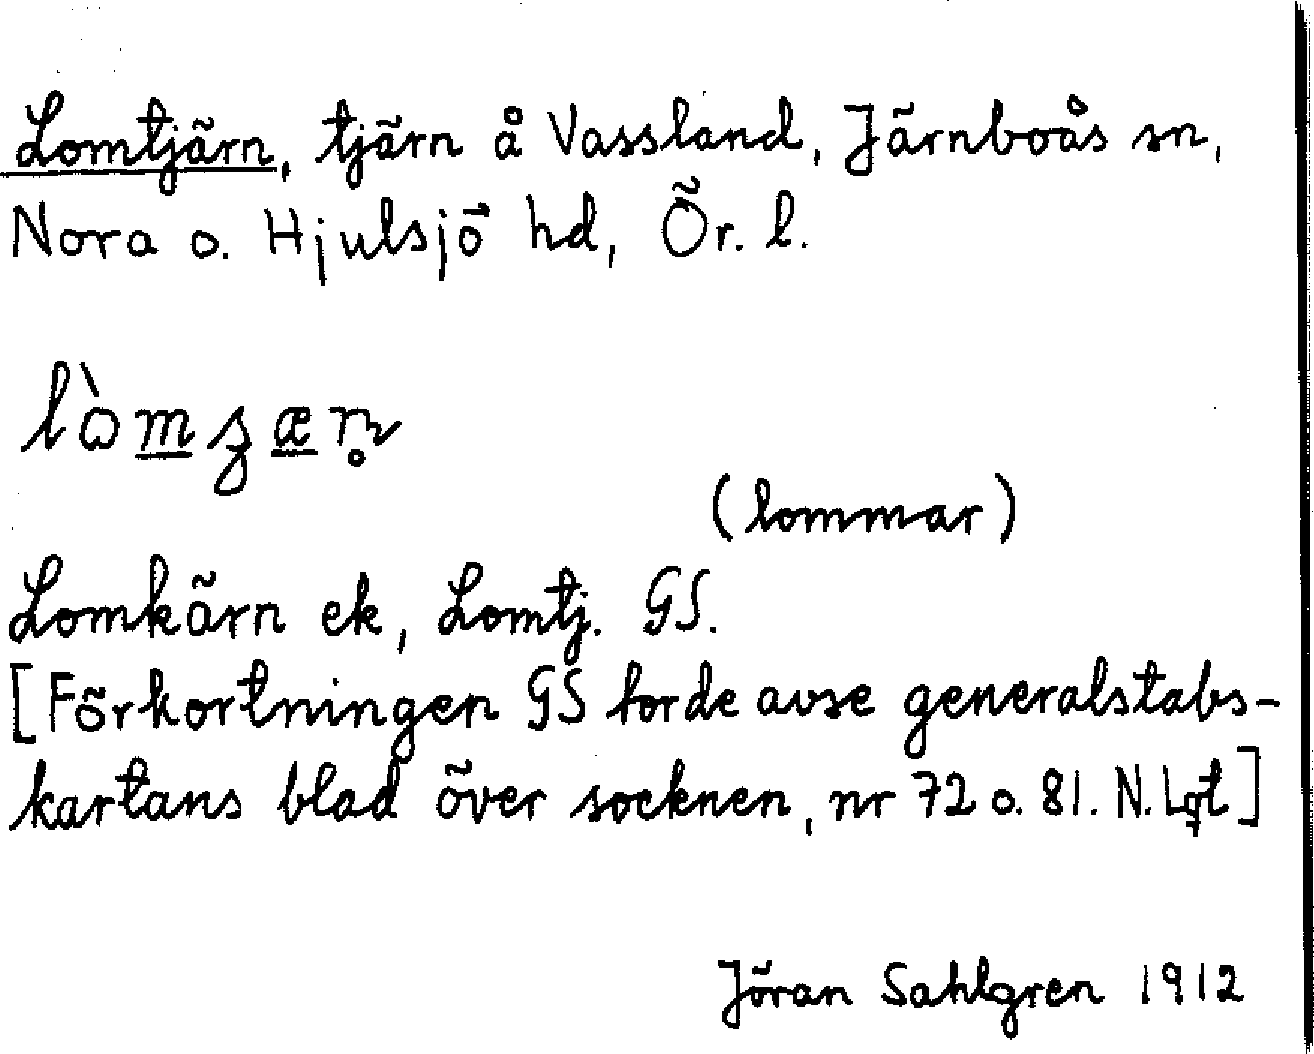 Lomtjärn, tjärn å Vassland, Järnboås sn,
Nora o. Hjulsjö hd, Ör. l.
lòmʒæṇ
(lommar)
Lomkärn ek, Lomtj. GS.
[Förkortningen GS torde avse generalstabs-
kartans blad över socknen, nr 72 o. 81. N. Lqt]
Jöran Sahlgren 1912